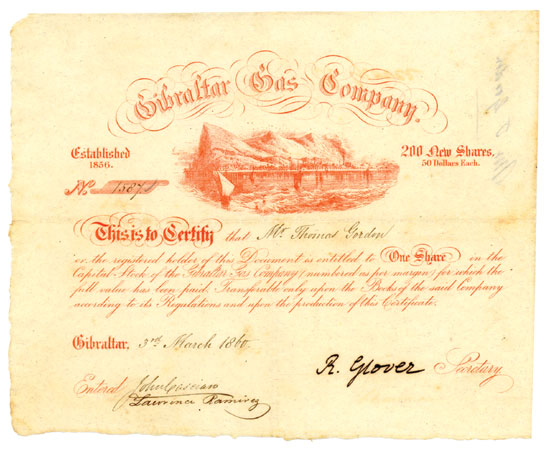 Gibraltar Gas Company.
Established
1856.
200 New Shares,
50 Dollars Each.
No. 1587
This is to Certify that Mr. Thomas Gordon
or the registered holder of this Document is entitled to One Share in the
Capital Stock of the Gibraltar Gas Company, numbered as per margin, for which the
full value has been paid. Transferable only upon the Books of the said Company
according to its Regulations and upon the production of this Certificate.
Gibraltar, 3rd March 1860.
R. Glover Secretary
Entered John
Lawrence Ramirez